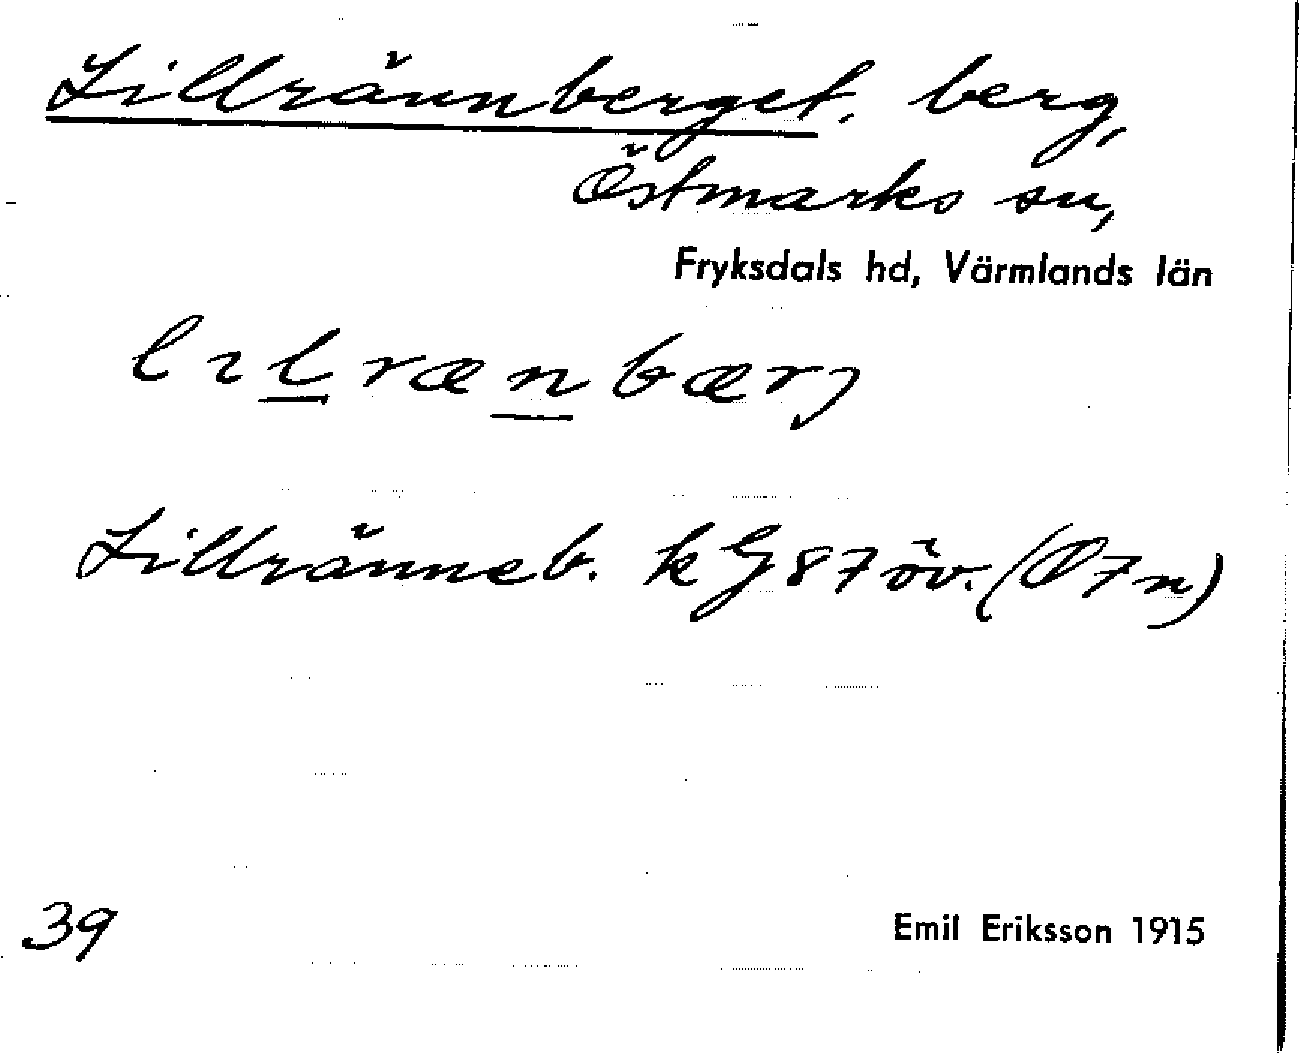 Lillrännberget, berg,
Östmarks sn,
Fryksdals hd, Värmlands län
lılrænbærj
Lillränneb. kG87öv. (Ø7n)
39
Emil Eriksson 1915